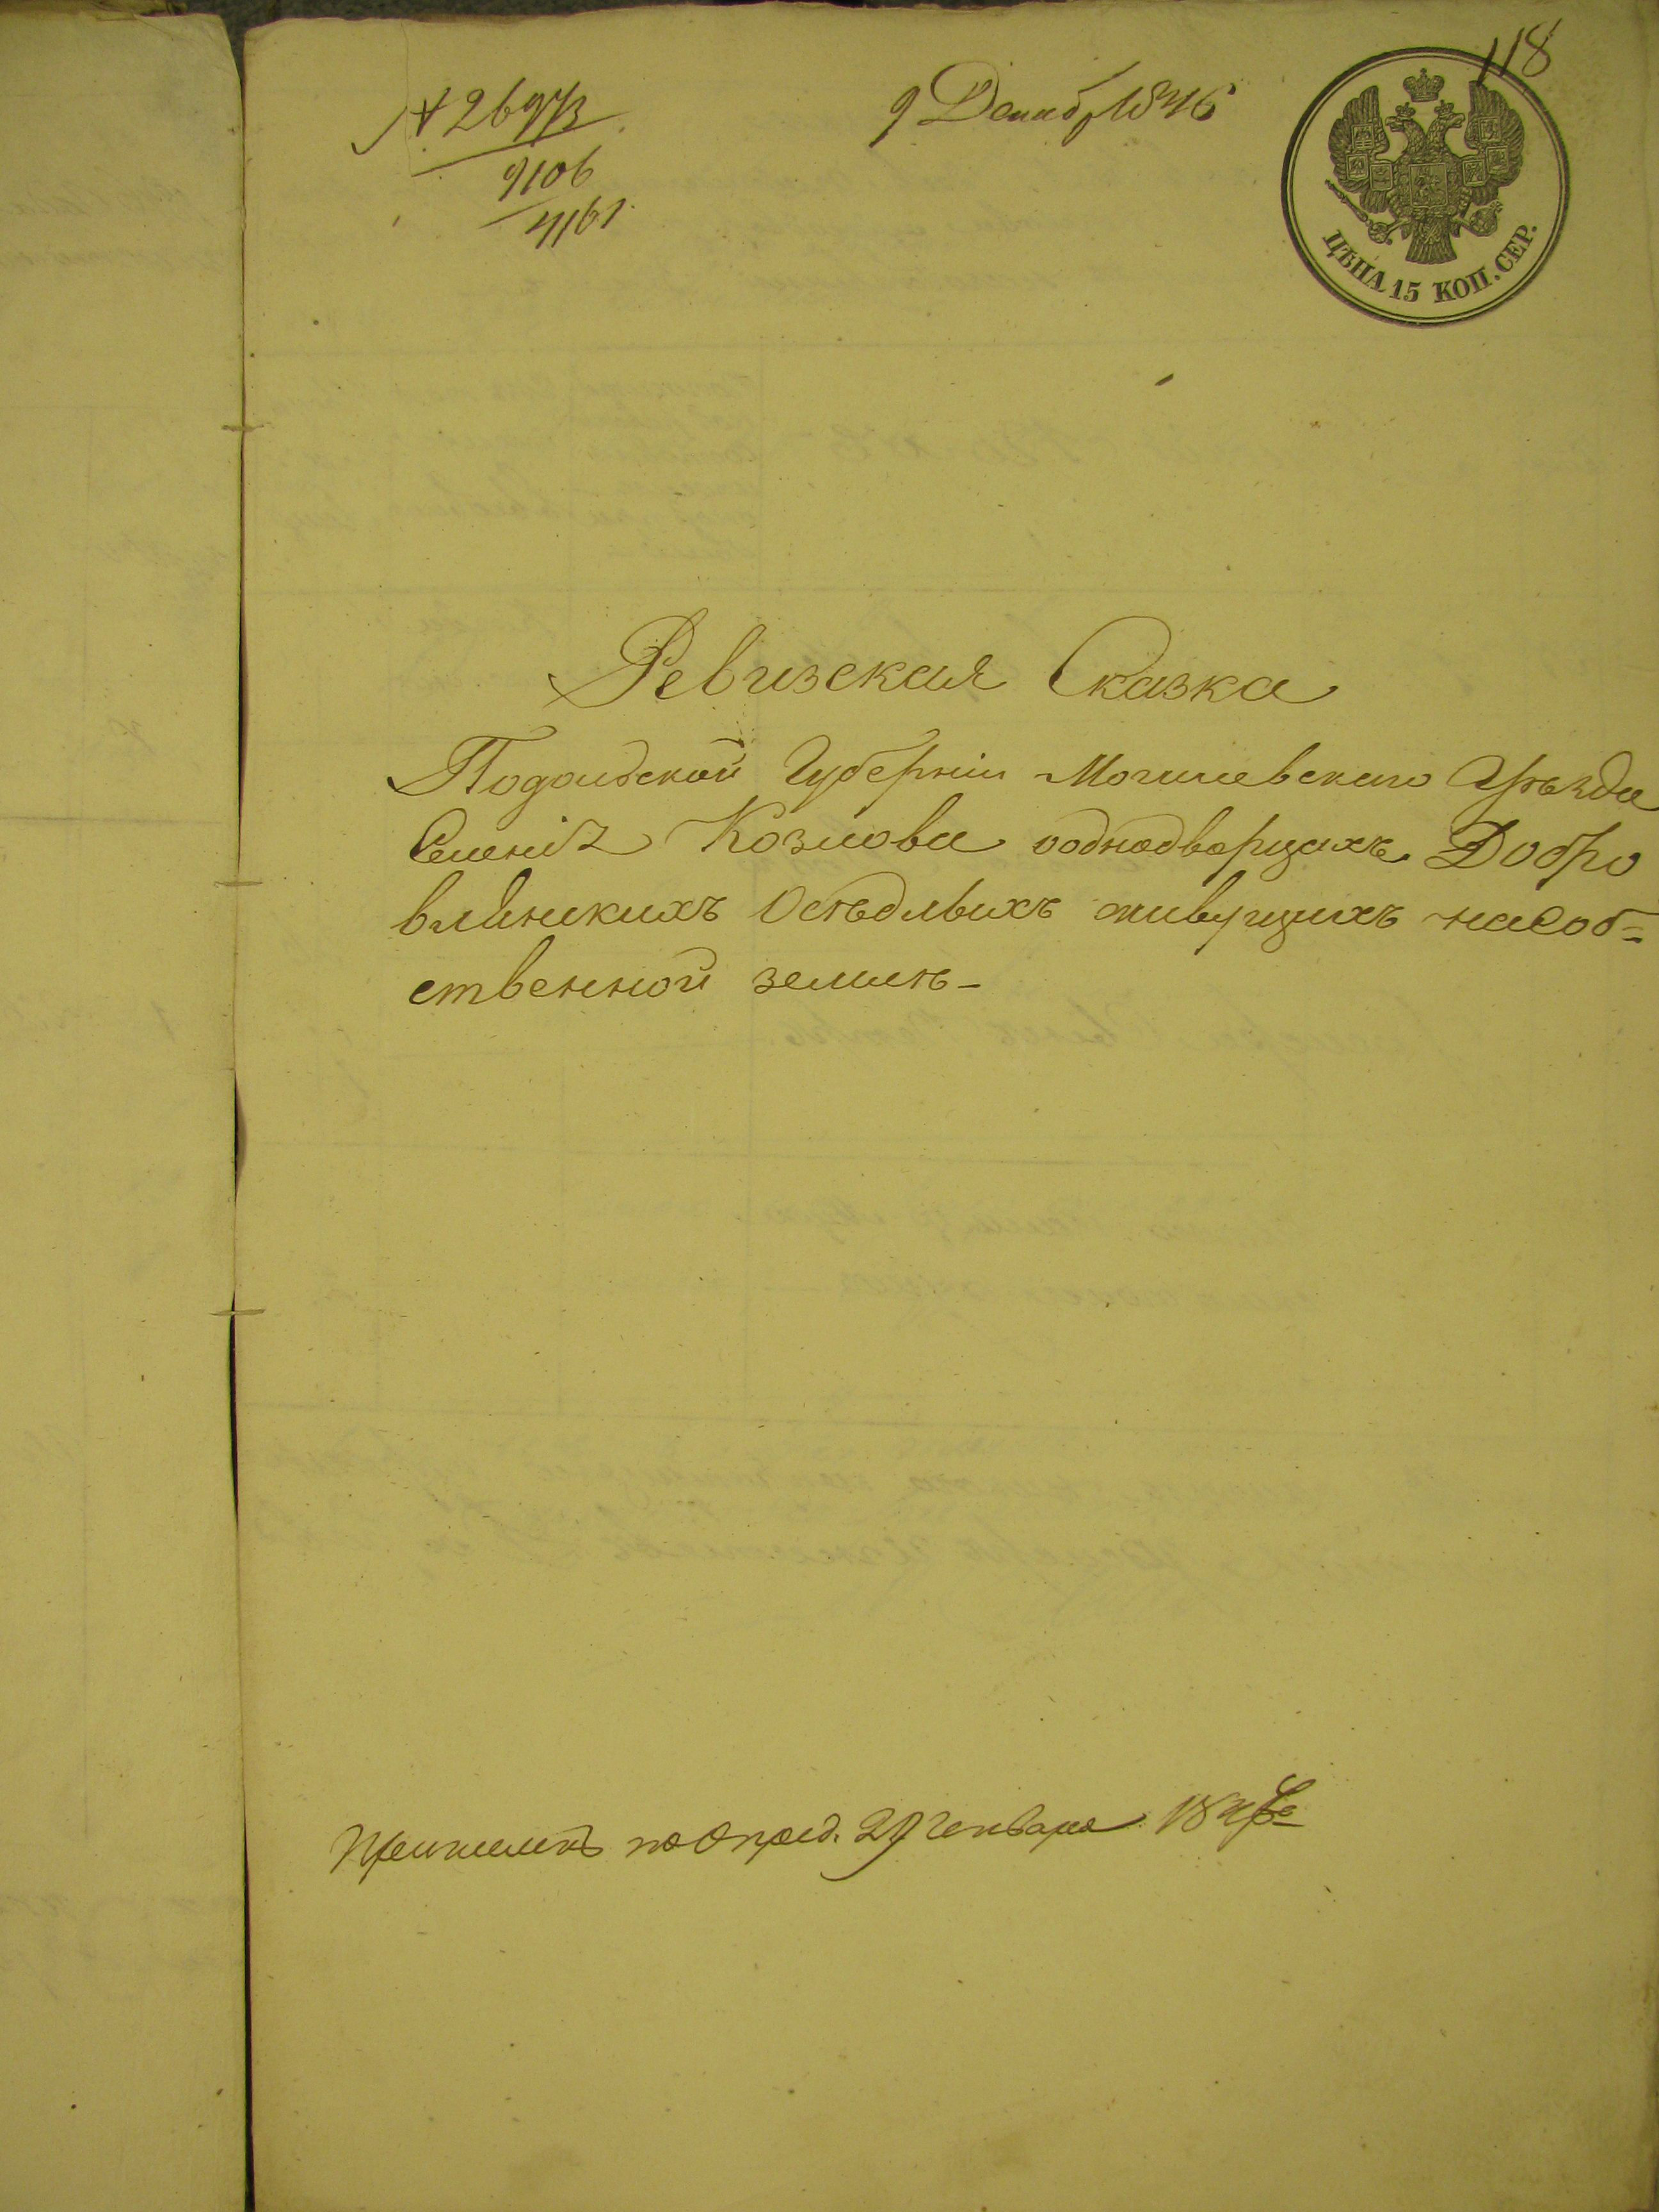 118
№ 26973
9 Декабр 1846
9106
4161
ЦѢНА 15 КОП. СЕР.
Ревизская Сказка
Подольской Губерніи Могилевскаго Уѣзда
Селенія Козлова ооднодворцахъ Добро
влянскихъ Осѣдлыхъ живущихъ насоб=
ственной землѣ-
по Опред. 29 Генваря